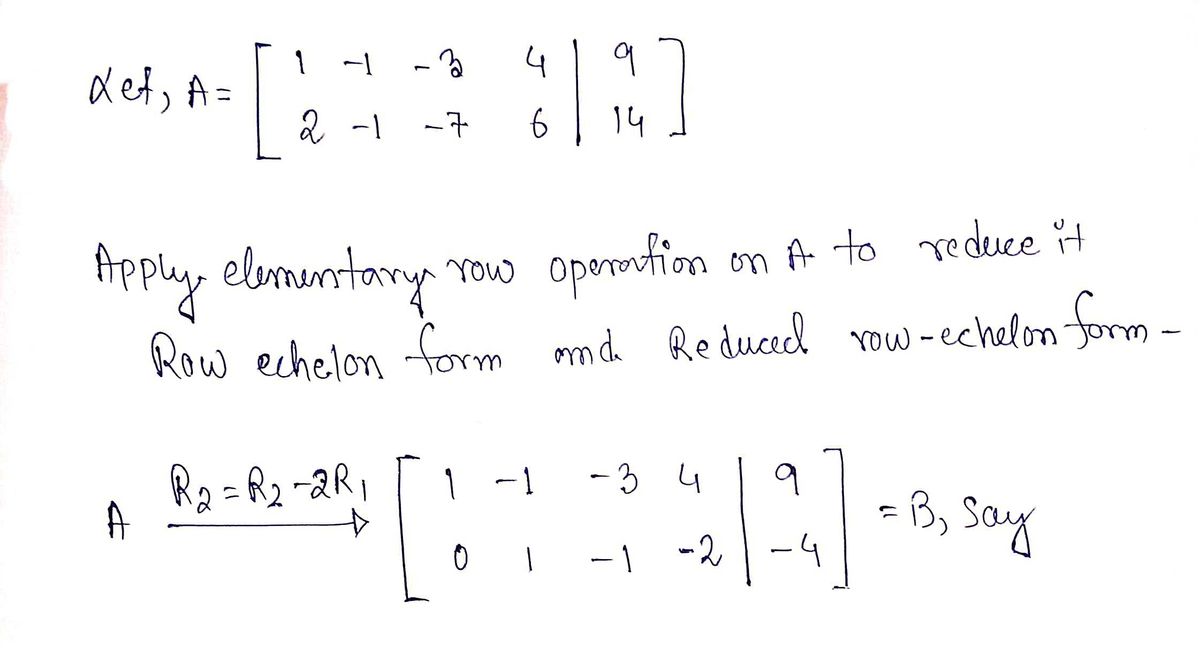 Let, A = [ 1 -1 -3 4 | 9 ]
[ 2 -1 -7 6 | 14 ]
Apply elementary row operation on A to reduce it
Row echelon form and Reduced row-echelon form -
A R2 = R2 - 2R1 → [ 1 -1 -3 4 | 9 ]
[ 0 1 -1 -2 | -4 ] = B, say